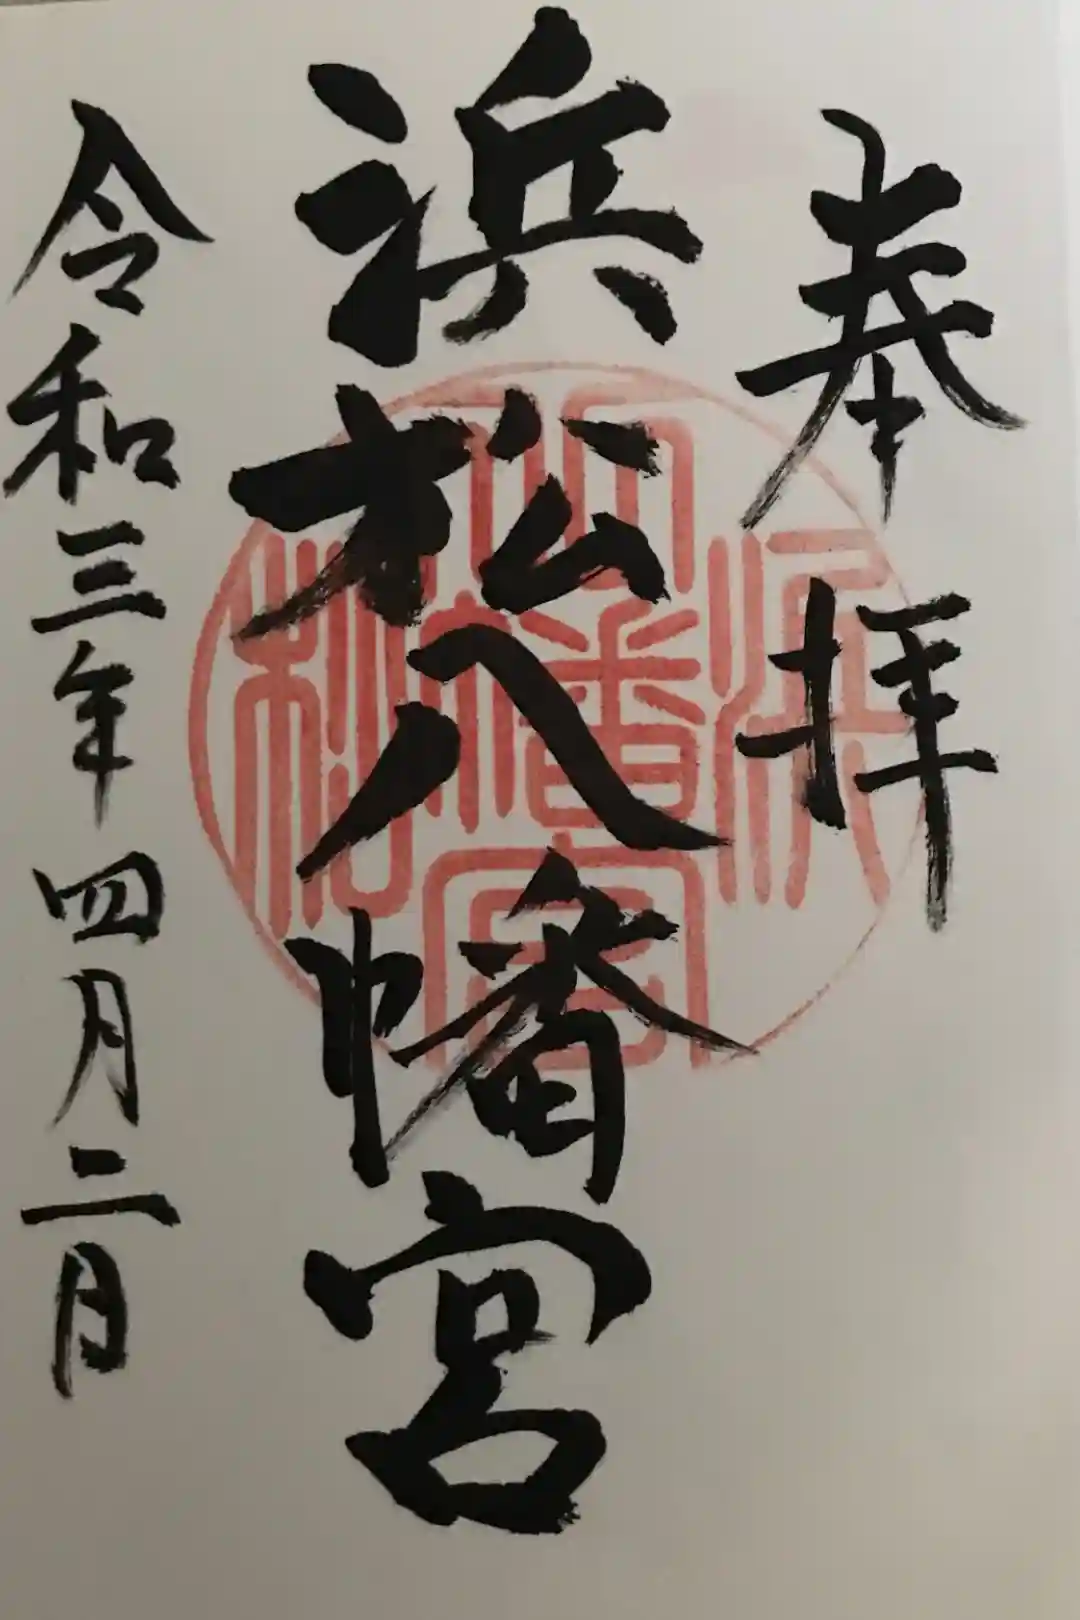 奉拝
浜松八幡宮
浜松八幡宮
令和三年四月二日